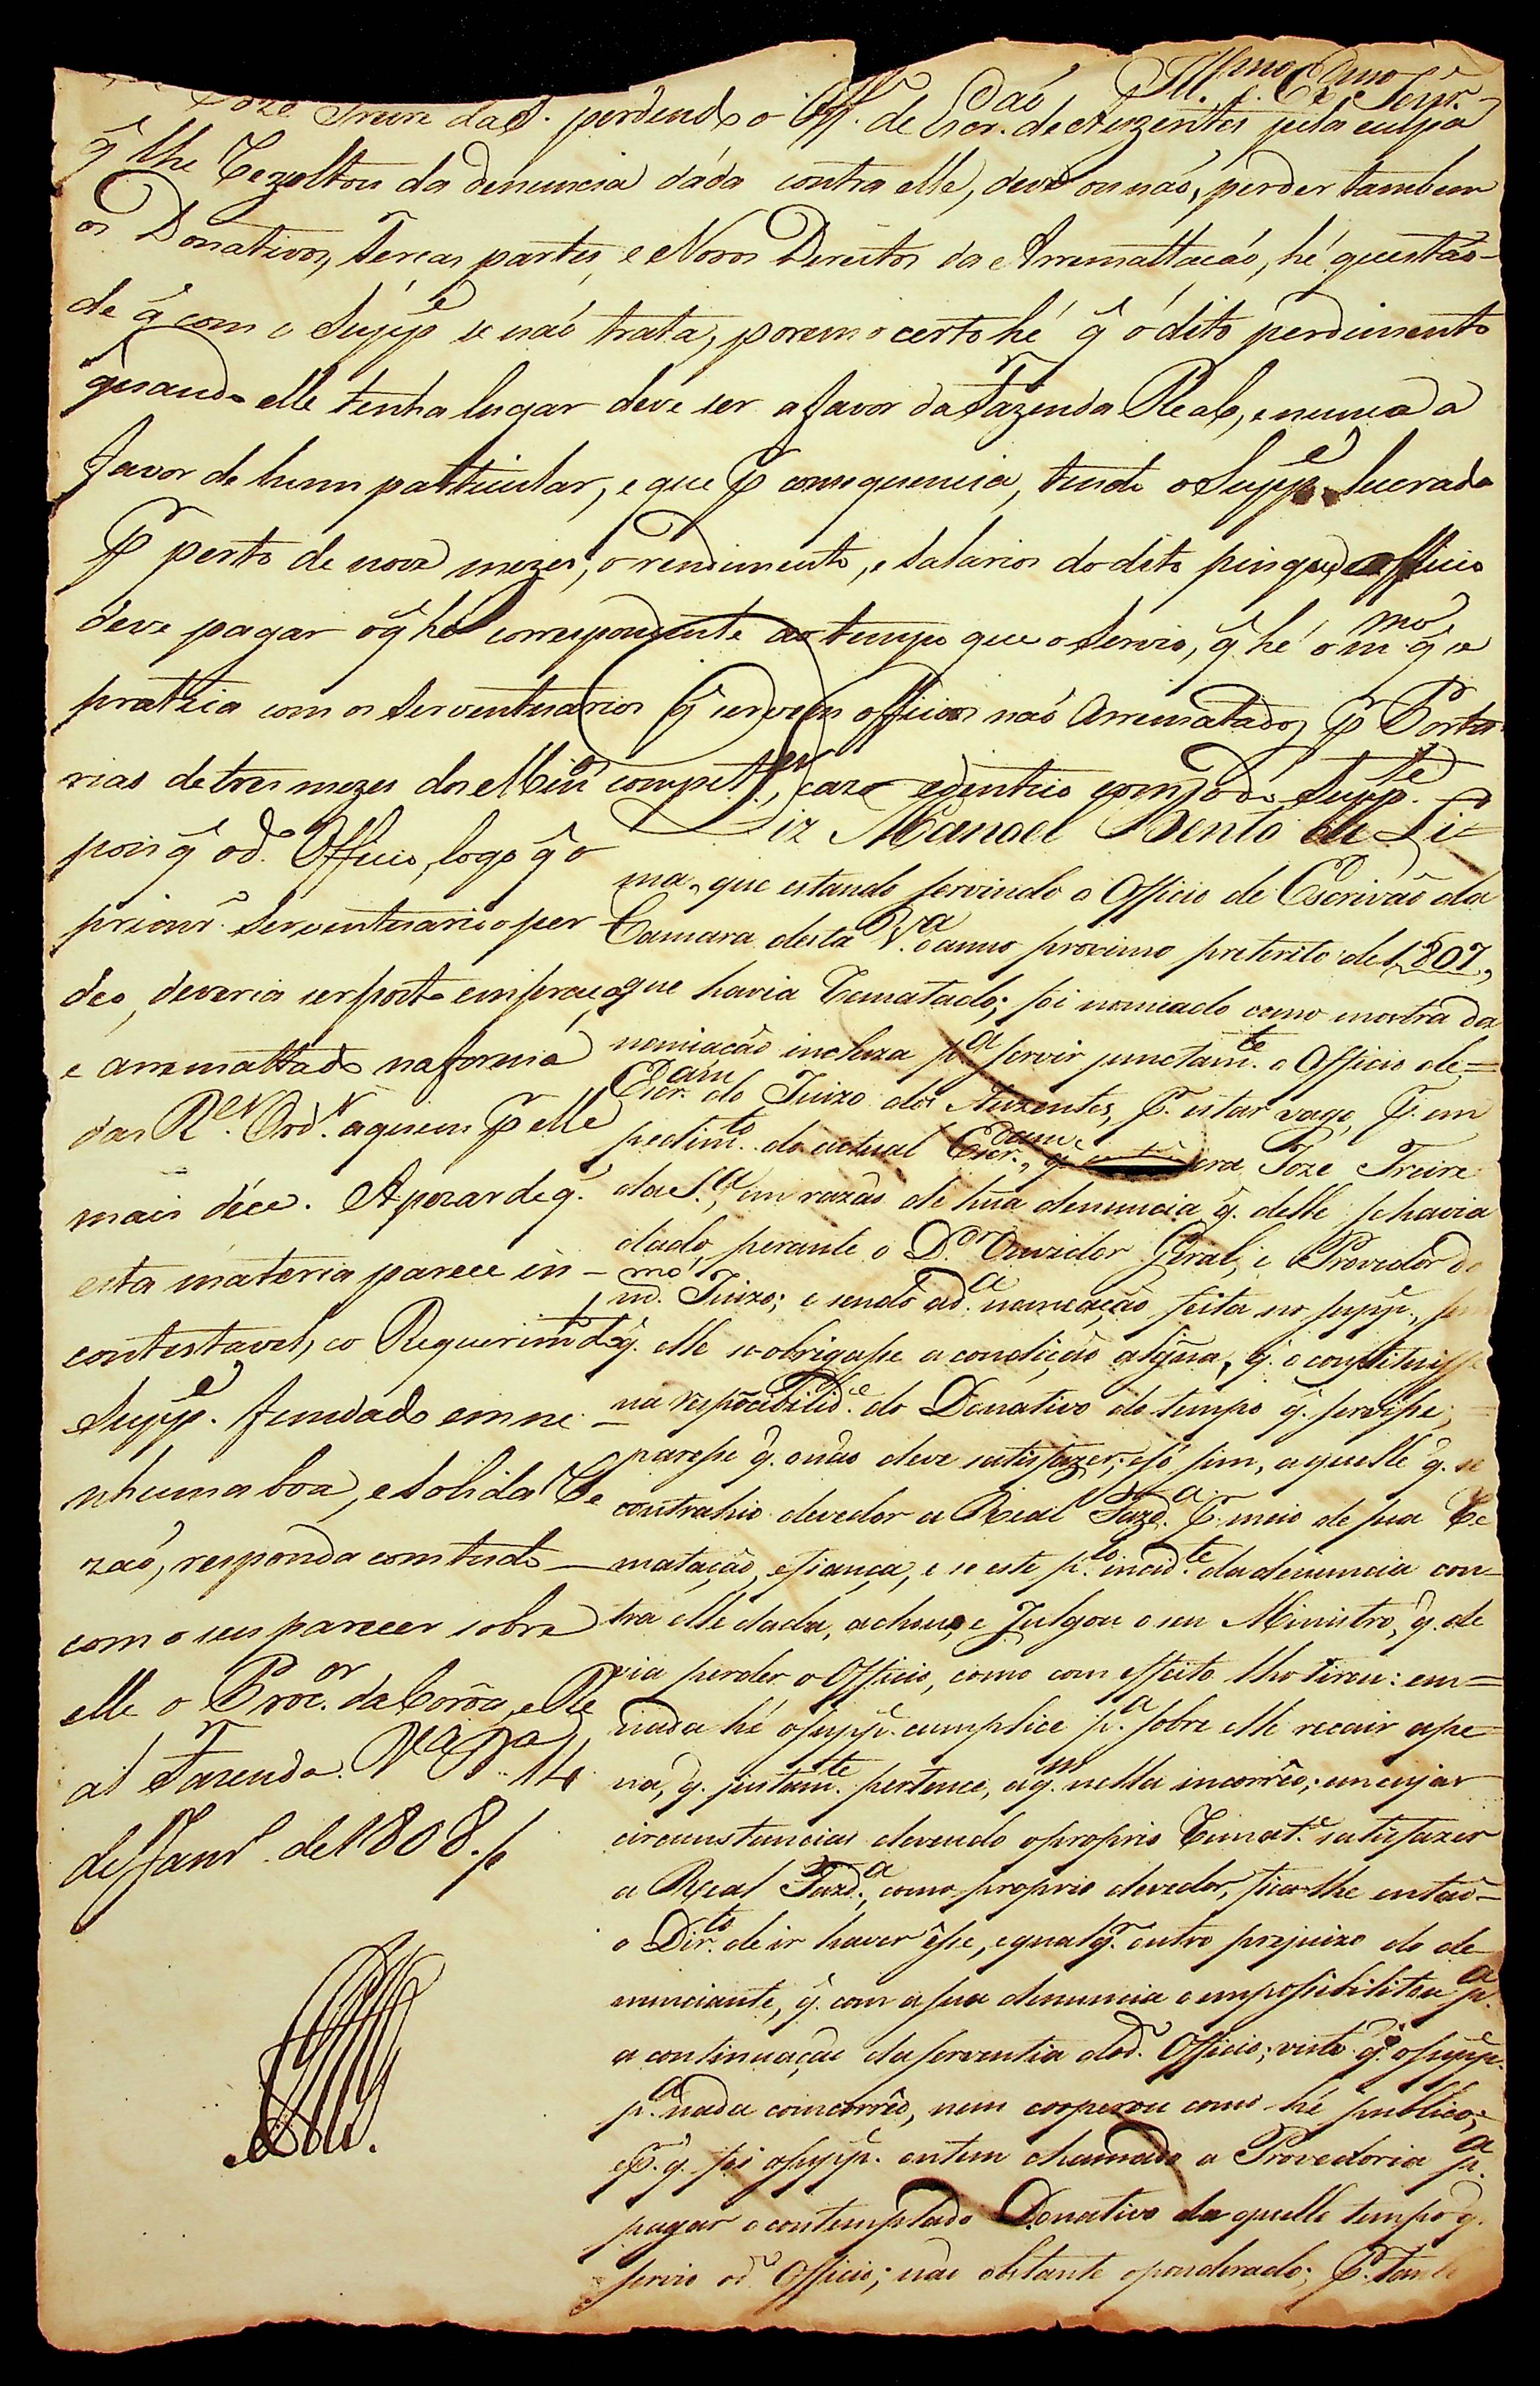 Ill.mo e Ex.mo Senr.
Joze Freire da S.a perdendo o Off.o de Escr.am de Auzentes pela culpa
q̃ lhe Rezultou da denuncia dáda contra elle, deve ou naõ, perder tambem
os Donativos, Terças partes, e Novos Direitos da Arremattaçaõ, hé questaõ
de q̃ com o Supp.e se naõ trata, porem o certo hé q̃ o dito perdimento
quando elle tenha lugar deve ser a favor da Fazenda Real, e nunca a
favor de hum particular, e que p.r consequencia, tendo o Supp.e lucrado
p.r perto de nove mezes, o rendimento, e salarios do dito pingue officio
deve pagar o q̃ hé correspondente ao tempo que o servio, q̃ hé o m.mo q̃ se
pratica com os serventuarios q̃ servem officios naõ arrematados p.r Porta-
rias de tres mezes dos Min.os compet.es, cazo identico com o do Supp.e
pois q̃ o d.o Officio, logo q̃ o
primr.o Serventuario o per
deo, deveria ser posto em praça,
e arremattado na forma
das R.es Ord.s a quem p.r elle
mais désse. Apezar de q̃
esta materia parece in-
contestavel, e o Requerim.to do
Supp.e fundado em ne-
nhuma boa, e solida Re
zaõ, responda com tudo
com o seu parecer sobre
elle o Proc.or da Corôa, e Re
al Fazenda. V.a B.a 14
de Janr.o de 1808./
Diz Manoel Bento de Li=
ma, que estando servindo o Officio de Escrivaõ da
Camara desta V.a o anno proximo preterito de 1807,
que havia Rematado; foi nomeado como mostra da
nomiaçaõ incluza p.a servir junctam.te o Officio de=
Escr.am do Juizo dos Auzentes, p.r estar vago, p.r im
pedim.to do actual Escr.am, q̃ era Joze Freire
da S.a, em razaõ de hũa denuncia q̃ delle se havia
dado, perante o D.or Ouvidor Geral, e Provedor do
m.mo Juizo; e sendo a d.a nomeaçaõ feita no supp.e, sem
q̃ elle se obrigasse a condiçaõ algũa, q̃ o constituisse
na respõcibilid.e do Donativo do tempo q̃ servisse;
paresse q̃ o naõ deve satisfazer, e só sim, aquelle q̃ se
contrahio devedor a Real Fazd.a p.r meio de sua Re
mataçaõ, e fiança, e se este p.lo incid.te da denuncia con-
tra elle dada, achou, e Julgou o seu Ministro, q̃ de
via perder o Officio, como com effeito lho tirou: em=
nada hé o supp.e cumplice p.a sobre elle recair a pe=
na, q̃ justam.te pertence, a q.m nella incorrêo; em cujas
circunstancias devendo o proprio Remat.e satisfazer
a Real Fazd.a, como proprio devedor, fica-lhe entaõ-
o Dir.to de ir haver êsse, e qualq.r outro prejuizo do de
nunciante, q̃ com a sua denuncia o empossibilitou p.a
a continuaçaõ da serventia do d.o Officio; visto q̃ o supp.e
p.a nada concorrêo, nem cooperou como hé publico;
e p.r q̃ foi o supp.e ontem chamado a Provedoria p.a
pagar o contemplado Donativo da quelle tempo q̃
servio o d.o Officio; naõ obstante o ponderado; p.r tanto